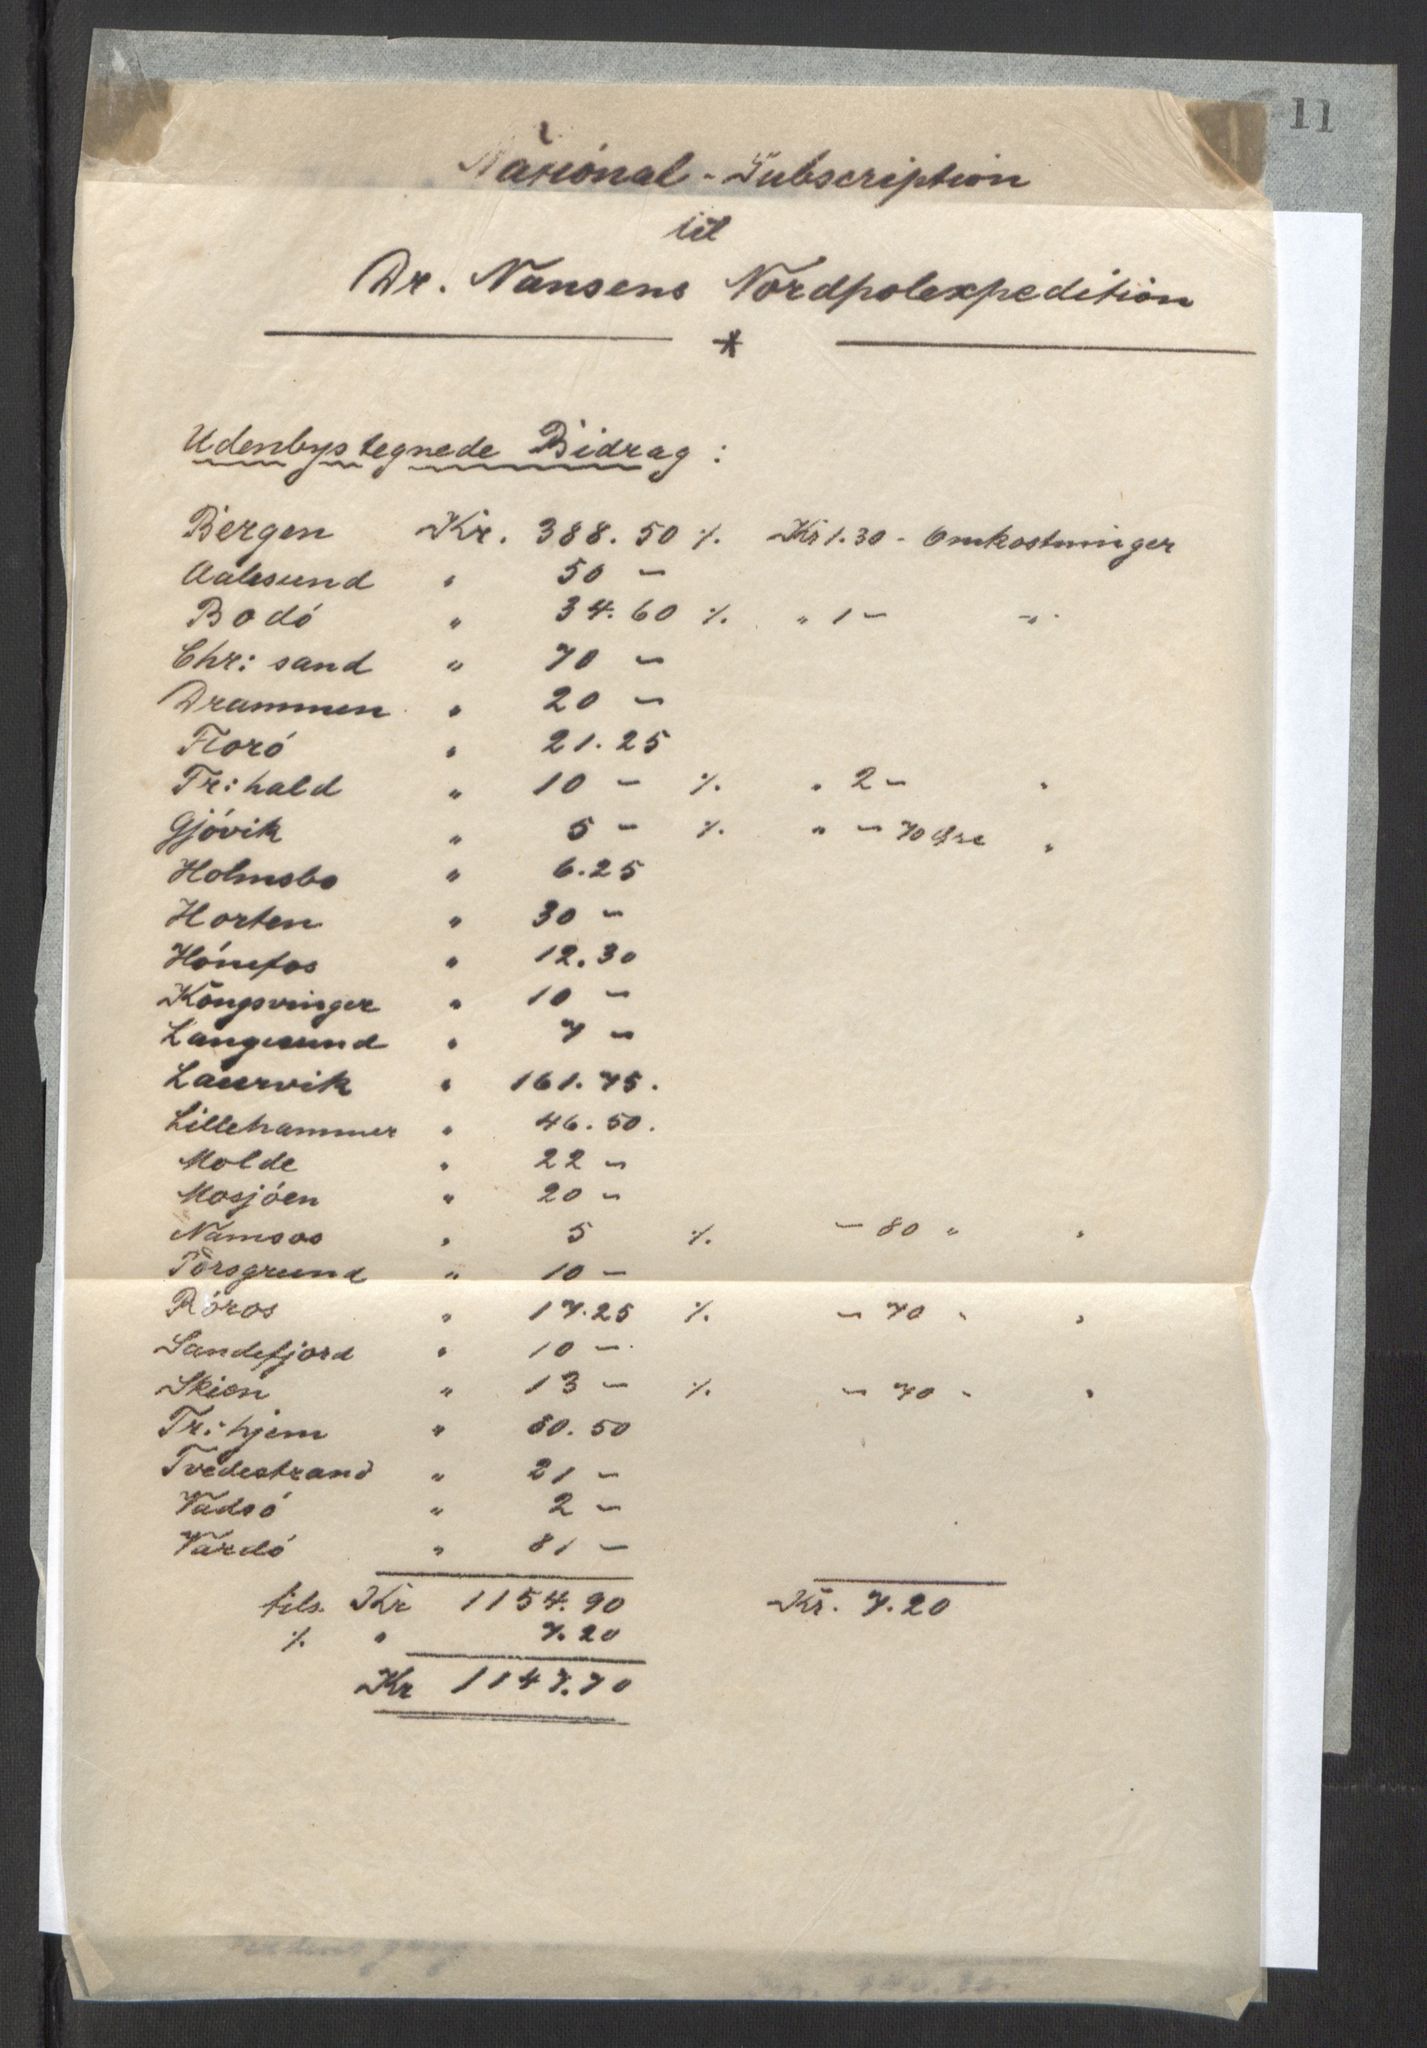 11
National-Subscription
til
Dr. Nansens Nordpolexpedition
*
Udenbys tegnede Bidrag:
Bergen Kr. 388.50 ٪ Kr 1.30 - Omkostninger
Aalesund " 50 –
Bodó " 34.60 ٪ " 1 – "
Chr: sand " 70 –
Drammen " 20 –
Floró " 21.25
Fr: hald " 10 – ٪ " 2 – "
Gjóvik " 5 – ٪ " – 70 Øre "
Holmsbo " 6.25
Horten " 30 –
Hónefos " 12.30
Kongsvinger " 10 –
Langesund " 7 –
Laurvik " 161.75.
Lillehammer " 46.50.
Molde " 22 –
Mosjóen " 20 –
Namsos " 5 ٪ – 80 " "
Porsgrund " 10 –
Róros " 17.25 ٪ – 70 " "
Sandefjord " 10 –
Skien " 13 – ٪ – 70 " "
Tr: hjem " 80.50
Tvedestrand " 21 –
Vadsó " 2 –
Vardó " 81 –
tils. Kr 1154.90 Kr. 7.20
٪ " 7.20
Kr 1147.70